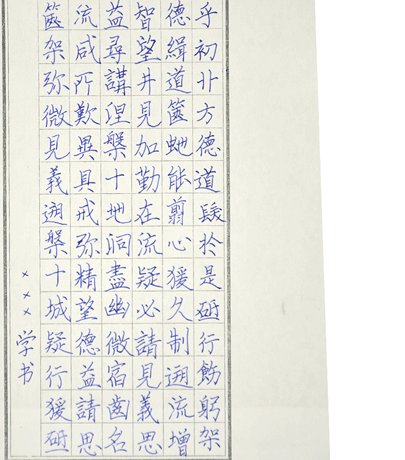 乎初丱方德道髮於是砥行飭躬架
德緝道篋虵能翦心猨久制遡流增
智望井見加勤在流疑必請見義思
益尋講涅槃十地洞盡幽微宿齒名
流咸所歎異具戒弥精望德益請思
篋架弥微見義遡槃十城疑行猨砥
×××学书